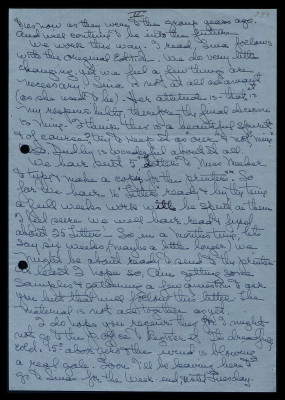 lives now as they were to the group years ago.
And will continue to be into the future.
We work this way - I read, Lina follows
with the original Edition. We do very little
changing, yet we feel a few things are
necessary. Lina is not at all adamant
(as she used to be). Her attitude is - that is
my responsibility, therefore the final decision
is mine. I think this is a beautiful spirit
& of course I try to keep it as "our" & not "my"
So, Buddy is wonderful about it all.
We have sent 5 letters to Mrs Maker
to type & make a copy for the printer. So
far we have 16 letters ready & by the time
a full weeks work will be spent on them
I feel sure we will have read & typed
about 25 letters - So in a months time, let
say six weeks (maybe a little longer) we
might be about ready to send to the printer
at least I hope so. Am getting some
samples & gathering a few questions to ask
you but that will follow this letter - the
material is not all together as yet.
I do hope you receive this OK. I might
not go to the P. office & Register it. It's dreadfully
cold. 15° above zero & the wind is blowing
a real gale. Soon I'll be leaving here to
go to Lina's for the Week-end, until Tuesday.